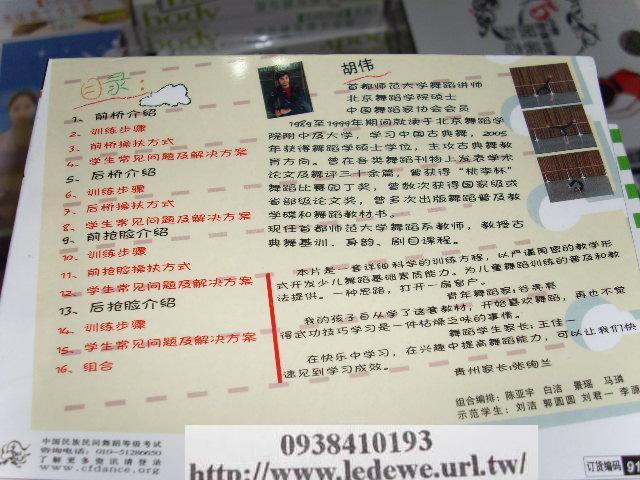 目录：
1、前桥介绍
2、训练步骤
3、前桥操扶方式
4、学生常见问题及解决方案
5、后桥介绍
6、训练步骤
7、后桥操扶方式
8、学生常见问题及解决方案
9、前抢脸介绍
10、训练步骤
11、前抢脸操扶方式
12、学生常见问题及解决方案
13、后抢脸介绍
14、训练步骤
15、学生常见问题及解决方案
16、组合
胡伟
首都师范大学舞蹈讲师
北京舞蹈学院硕士
中国舞蹈家协会会员
1989至1999年期间就读于北京舞蹈学
院附中及大学，学习中国古典舞，2005
年获得舞蹈学硕士学位，主攻古典舞教
育方向。曾在各类舞蹈刊物上发表学术
论文及舞评三十余篇，曾获得“桃李杯”
舞蹈比赛园丁奖，曾数次获得国家级或
省部级论文奖，曾多次出版舞蹈普及教
学碟和舞蹈教材书。
现任首都师范大学舞蹈系教师，教授古
典舞基训、身韵、剧目课程。
本片是一套详细科学的训练方程，以严谨周密的教学形
式开发少儿舞蹈基础素质能力。为儿童舞蹈训练的普及和教
法提供。一种思路，打开一扇窗户。
青年舞蹈家：谷亮亮
我的孩子自从学了这套教材，开始喜欢舞蹈，再也不觉
得武功技巧学习是一件枯燥乏味的事情。
舞蹈学生家长：王佳一
在快乐中学习，在兴趣中提高舞蹈能力，可以让我们快
速见到学习成效。
贵州家长：张绚兰
组合编排：陈亚宇 白洁 景瑶 马琳
示范学生：刘洁 郭圆圆 刘君一 李源
中国民族民间舞蹈等级考试
咨询电话：010-51286650
了解更多资讯请登录
www.cfdance.org
订货编码 91
0938410193
http://www.ledewe.url.tw/
body